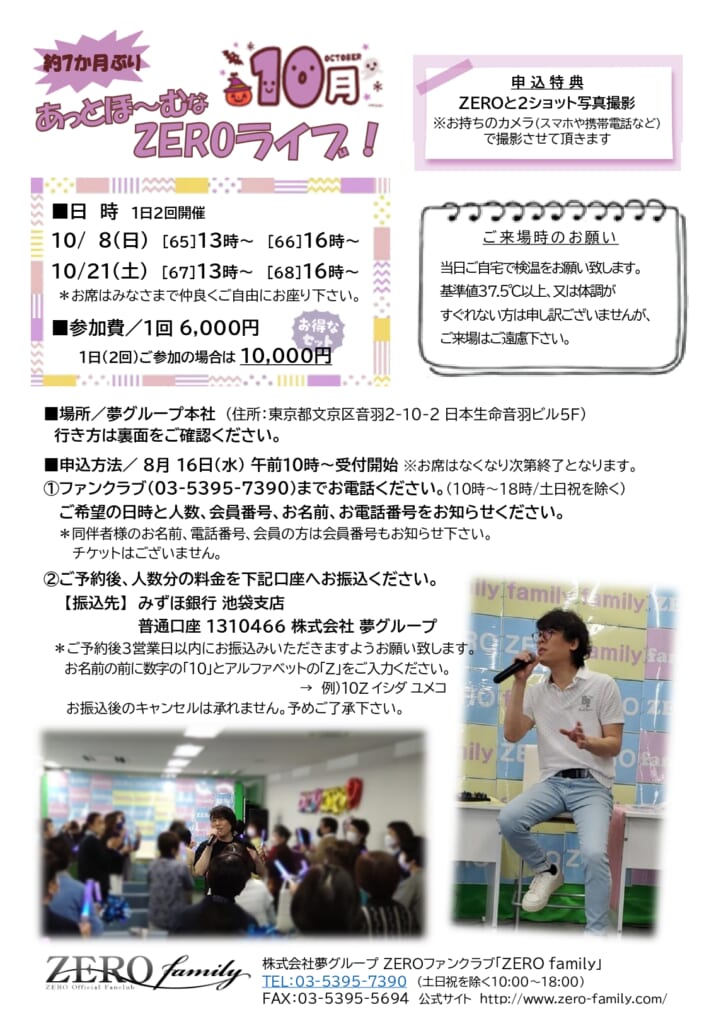 約7か月ぶり
10月
OCTOBER
あっとほ～むな
ZEROライブ！
申込特典
ZEROと2ショット写真撮影
※お持ちのカメラ(スマホや携帯電話など)
で撮影させて頂きます
■日　時　1日2回開催
10/ 8(日)　[65]13時～　[66]16時～
10/21(土)　[67]13時～　[68]16時～
＊お席はみなさまで仲良くご自由にお座り下さい。
■参加費／1回 6,000円
お得な
セット
1日(2回)ご参加の場合は 10,000円
ご来場時のお願い
当日ご自宅で検温をお願い致します。
基準値37.5℃以上、又は体調が
すぐれない方は申し訳ございませんが、
ご来場はご遠慮下さい。
■場所／夢グループ本社　(住所：東京都文京区音羽2-10-2 日本生命音羽ビル5F)
行き方は裏面をご確認ください。
■申込方法／ 8月 16日(水) 午前10時～受付開始 ※お席はなくなり次第終了となります。
①ファンクラブ(03-5395-7390)までお電話ください。(10時～18時/土日祝を除く)
ご希望の日時と人数、会員番号、お名前、お電話番号をお知らせください。
＊同伴者様のお名前、電話番号、会員の方は会員番号もお知らせ下さい。
チケットはございません。
②ご予約後、人数分の料金を下記口座へお振込ください。
【振込先】 みずほ銀行 池袋支店
普通口座 1310466 株式会社 夢グループ
＊ご予約後3営業日以内にお振込みいただきますようお願い致します。
お名前の前に数字の「10」とアルファベットの「Z」をご入力ください。
→ 例)10Z イシダ ユメコ
お振込後のキャンセルは承れません。予めご了承下さい。
family family
ZERO
family
ZERO family
ZERO Official Fanclub
株式会社夢グループ ZEROファンクラブ「ZERO family」
TEL:03-5395-7390　(土日祝を除く10:00～18:00)
FAX:03-5395-5694　公式サイト　http://www.zero-family.com/